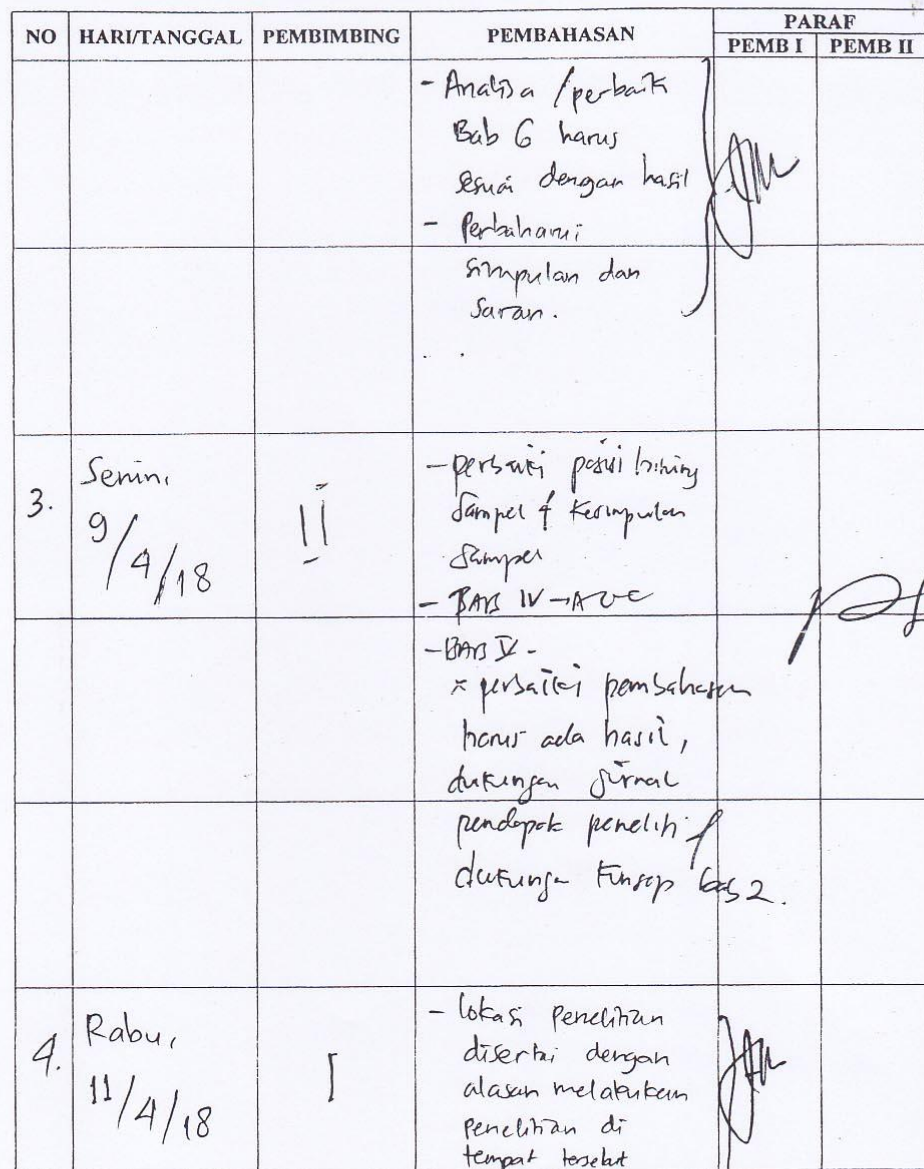 NO HARI/TANGGAL PEMBIMBING PEMBAHASAN PARAF
PEMB I PEMB II
- Analisa / perbaiki
Bab 6 harus
sesuai dengan hasil
- Perbaharui
simpulan dan
saran.
3. Senin, 9/4/18 II
- perbaiki posisi
sampel & kesimpulan
sampel
- BAB IV → ACC
- BAB V -
* perbaiki pembahasan
harus ada hasil,
dukungan jurnal
pendapat peneliti &
dukungan konsep bab 2.
4. Rabu, 11/4/18 I
- lokasi penelitian
disertai dengan
alasan melakukan
penelitian di
tempat tersebut